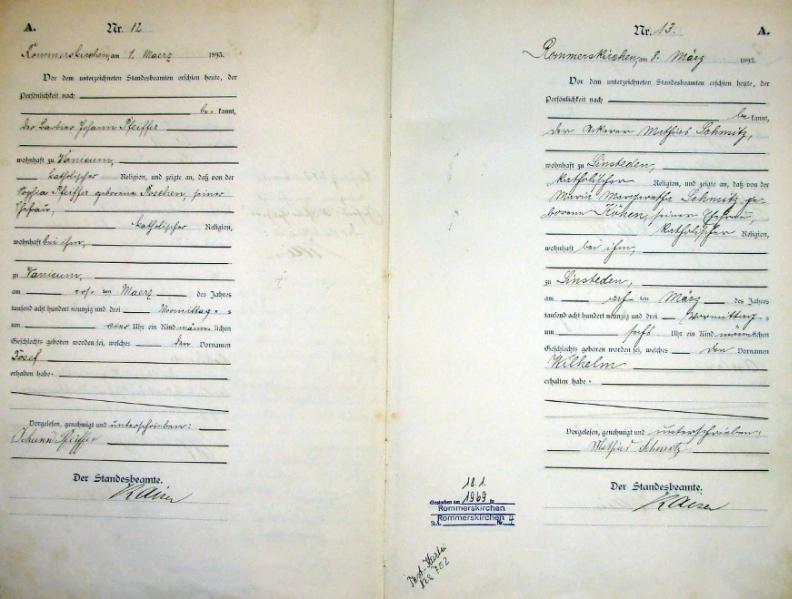 A.
Nr. 12
Rommerskirchen, am 1. Maerz 1893.
Vor dem unterzeichneten Standesbeamten erschien heute, der
Persönlichkeit nach
be- kannt,
der Barbier Johann Pfeiffer
wohnhaft zu Vanicum,
katholischer Religion, und zeigte an, daß von der
Sophia Pfeiffer geborene Poschen, seiner
Ehefrau,
katholischer Religion,
wohnhaft bei ihm,
zu Vanicum,
am ersten Maerz des Jahres
tausend acht hundert neunzig und drei Vormittags
um Uhr ein Kind männlichen
Geschlechts geboren worden sei, welches den Vornamen
Josef
erhalten habe.
Vorgelesen, genehmigt und unterschrieben:
Johann Pfeiffer
Der Standesbeamte.
Kaiser
Nr. 13.
A.
Rommerskirchen, am 8. März 1893.
Vor dem unterzeichneten Standesbeamten erschien heute, der
Persönlichkeit nach
be kannt,
der Ackerer Mathias Schmitz,
wohnhaft zu Sinsteden,
katholischer Religion, und zeigte an, daß von der
Maria Margaretha Schmitz ge-
borene Köhen, seiner Ehefrau,
katholischer Religion,
wohnhaft bei ihm,
zu Sinsteden,
am März des Jahres
tausend acht hundert neunzig und drei Vormittags
um sechs Uhr ein Kind männlichen
Geschlechts geboren worden sei, welches den Vornamen
Wilhelm
erhalten habe.
Vorgelesen, genehmigt und unterschrieben:
Mathias Schmitz
Der Standesbeamte.
Kaiser
18.1
Gestorben am 1969 in
Rommerskirchen
Rommerskirchen Nr. 4